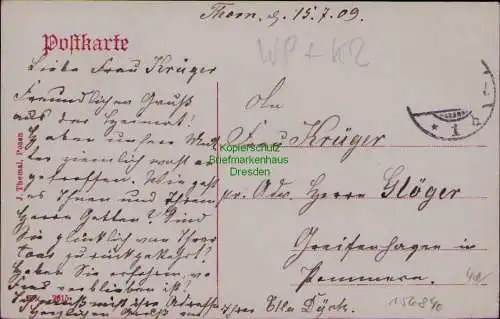 Thorn, d. 15.7.09.
WP + K2
Postkarte
Liebe Frau Krüger
Freundlichen Gruß
aus der Heimat!
Haben unsere
ter ziemlich wohl an-
getroffen. Wie geht
es Ihnen und Ihrem
Herrn Gatten? Sind
Sie glücklich von Ihrer
zurückgekehrt?
Haben Sie erfahren, wo
Frau verblieben ist?
Ihre Adresse
Herzlichen Gruß
Ihre Ella Dück.
An
Frau Krüger
pr. Adr. Herrn Glöger
Greifenhagen in
Pommern.
J. Themal, Posen
Kopierschutz
Briefmarkenhaus
Dresden